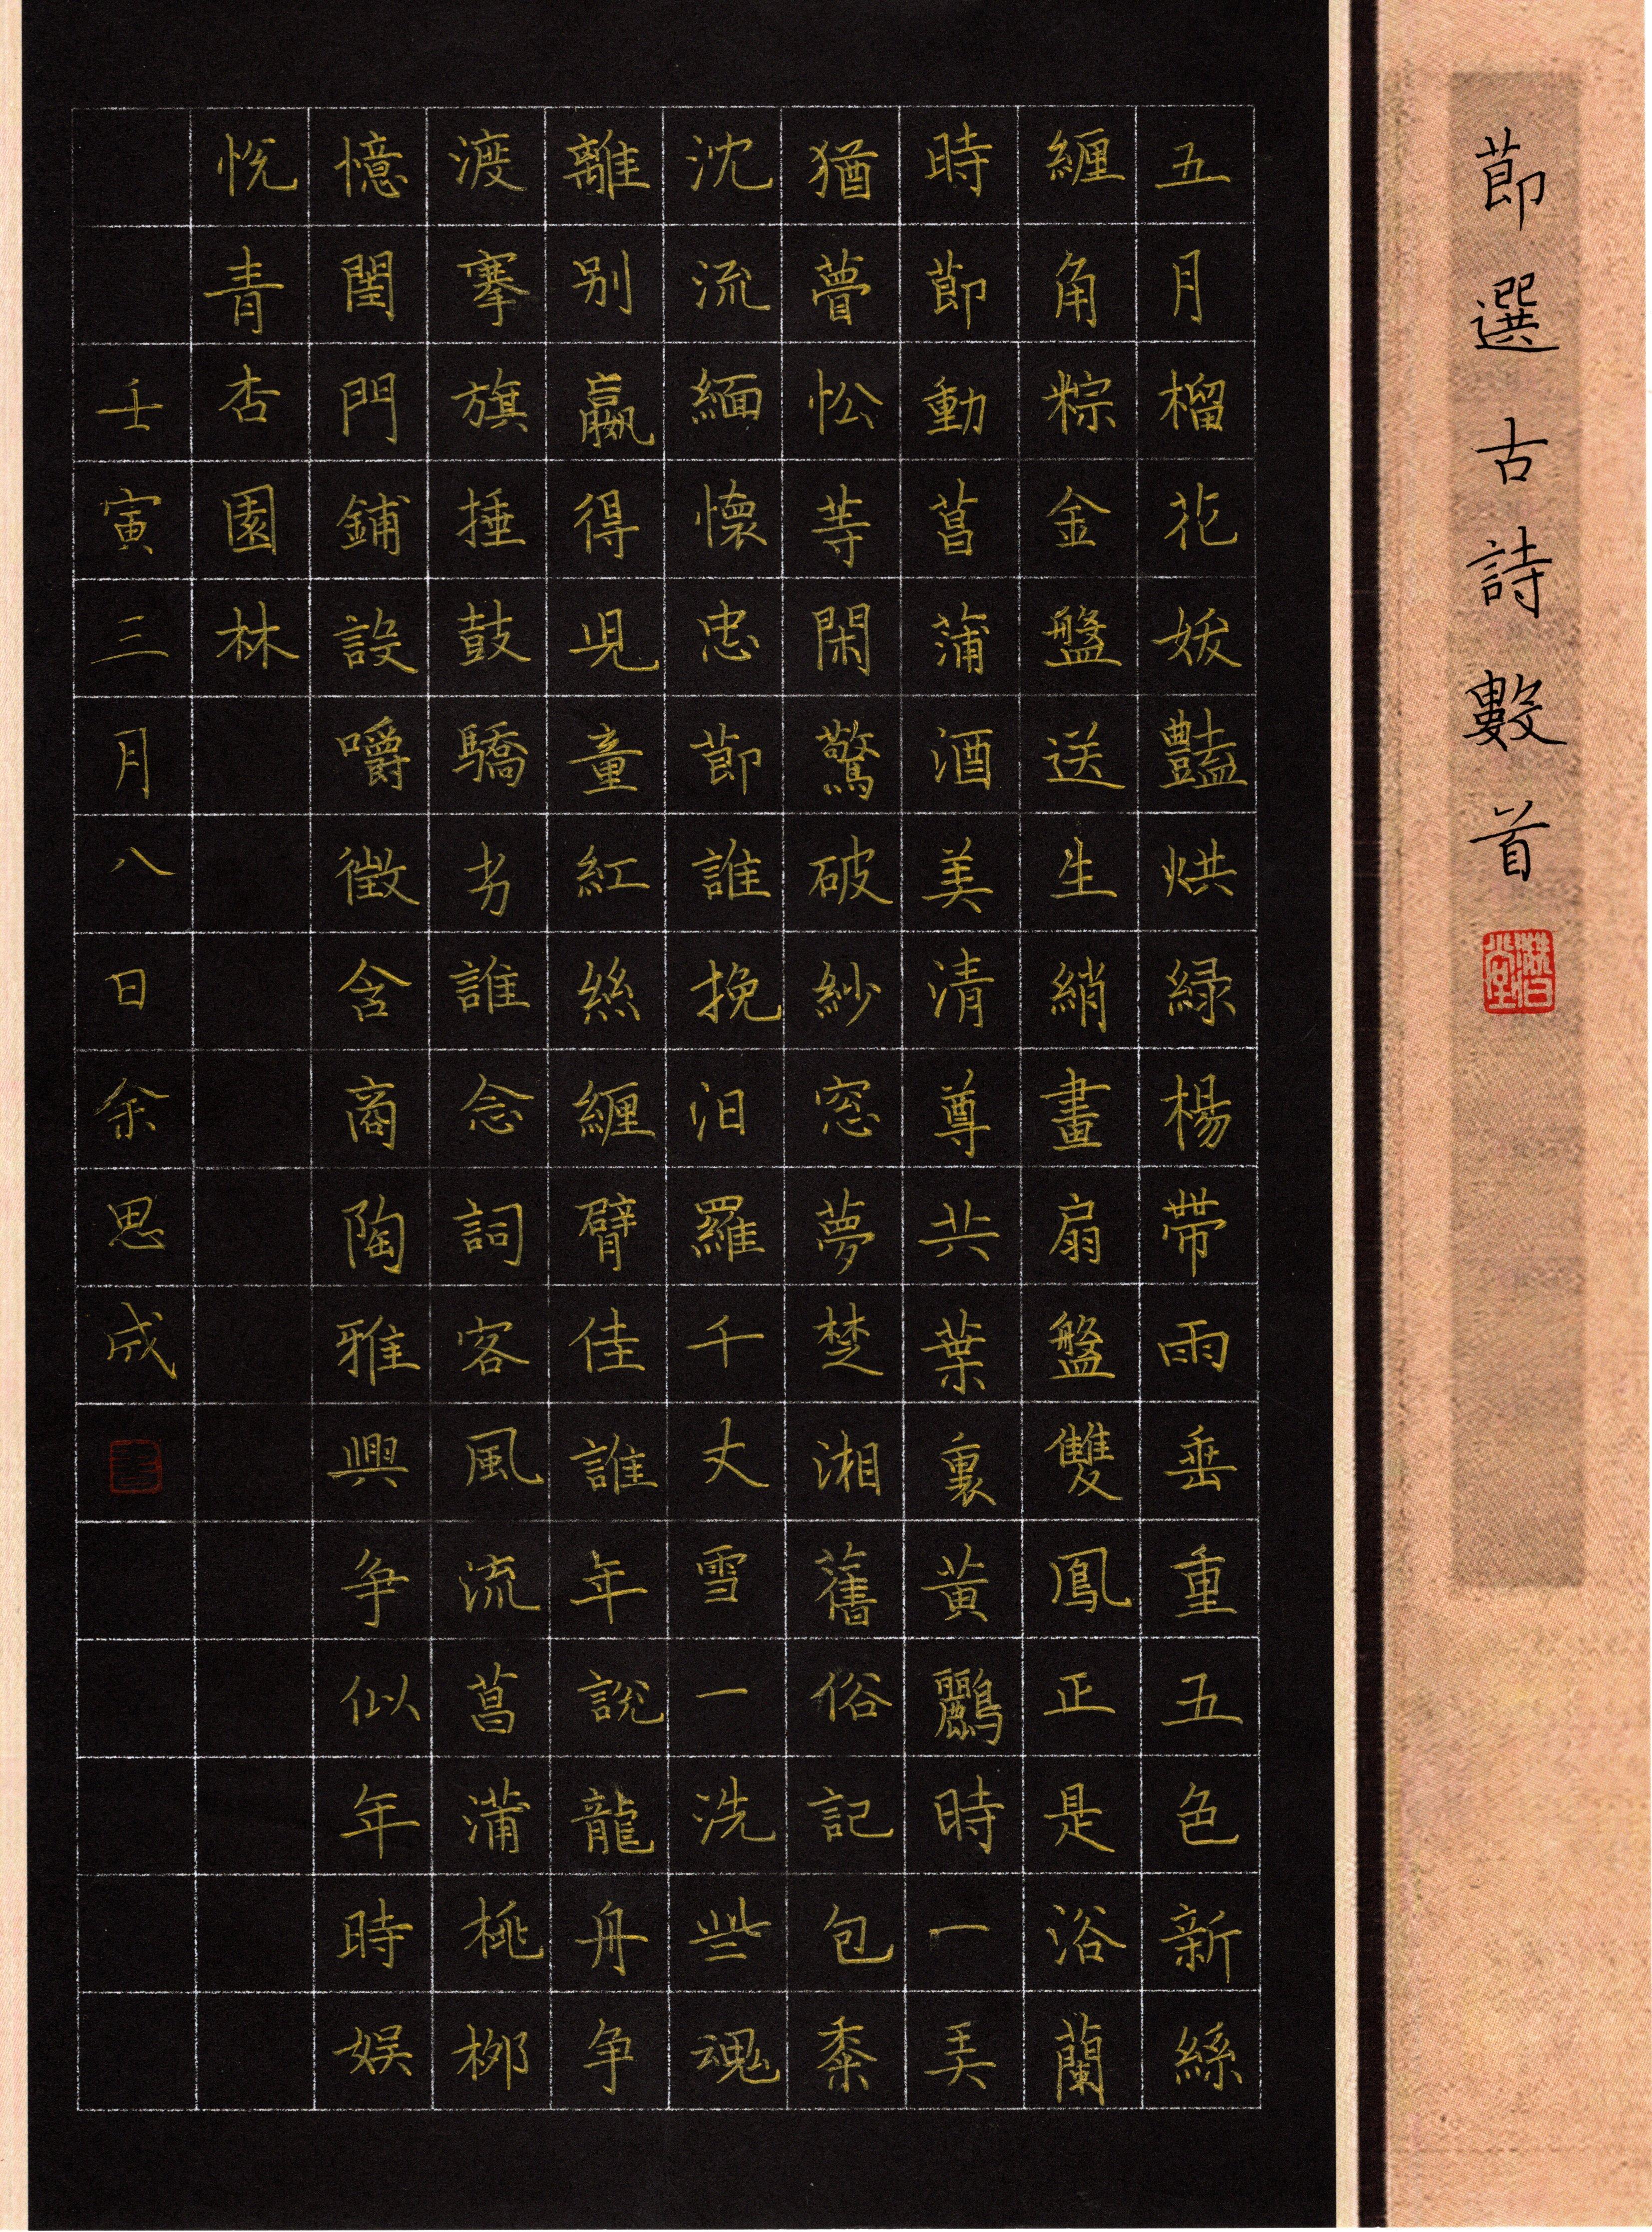 節選古詩數首
潛堂
五月榴花妖豔烘綠楊帶雨垂重五色新絲
纏角粽金盤送生綃畫扇盤雙鳳正是浴蘭
時節動菖蒲酒美清尊共葉裏黃鸝時一弄
猶瞢忪等閑驚破紗窓夢楚湘舊俗記包黍
沈流緬懷忠節誰挽汨羅千丈雪一洗些魂
離別贏得兒童紅絲纏臂佳誰年說龍舟爭
渡搴旗捶鼓驕劣誰念詞客風流菖蒲桃柳
憶閨門鋪設嚼徵含商陶雅興爭似年時娛
悅青杏園林
壬寅三月八日余思成
書